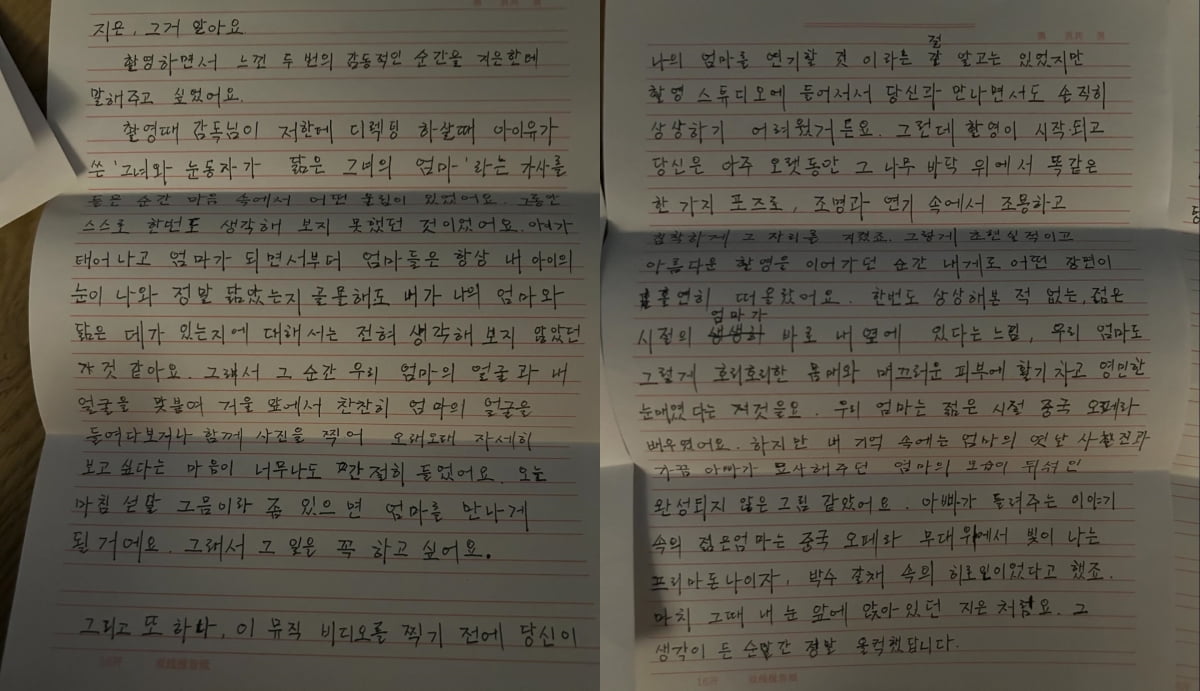 지은, 그거 알아요
촬영하면서 느낀 두 번의 감동적인 순간을 지은한테
말해주고 싶었어요.
촬영때 감독님이 저한테 디렉팅 하실때 아이유가
쓴 '그녀와 눈동자가 닮은 그녀의 엄마' 라는 가사를
들은 순간 마음 속에서 어떤 울림이 있었어요. 그동안
스스로 한번도 생각해 보지 못했던 것이었어요. 아이가
태어나고 엄마가 되면서부터 엄마들은 항상 내 아이의
눈이 나와 정말 닮았는지 골몰해도 내가 나의 엄마와
닮은 데가 있는지에 대해서는 전혀 생각해 보지 않았던
것 같아요. 그래서 그 순간 우리 엄마의 얼굴과 내
얼굴을 맞붙여 거울 앞에서 찬찬히 엄마의 얼굴을
들여다보거나 함께 사진을 찍어 오래오래 자세히
보고 싶다는 마음이 너무나도 간절히 들었어요. 오늘
마침 섣달 그믐이라 좀 있으면 엄마를 만나게
될 거에요. 그래서 그 일은 꼭 하고 싶어요.
그리고 또 하나, 이 뮤직 비디오를 찍기 전에 당신이
절
나의 엄마를 연기할 것 이라는 걸 알고는 있었지만
촬영 스튜디오에 들어서서 당신과 만나면서도 솔직히
상상하기 어려웠거든요. 그런데 촬영이 시작되고
당신은 아주 오랫동안 그 나무 바닥 위에서 똑같은
한 가지 포즈로, 조명과 연기 속에서 조용하고
침착하게 그 자리를 지켰죠. 그렇게 초현실적이고
아름다운 촬영을 이어가던 순간 내게로 어떤 장면이
홀연히 떠올랐어요. 한번도 상상해본 적 없는, 젊은
엄마가
시절의 생생히 바로 내 옆에 있다는 느낌, 우리 엄마도
그렇게 호리호리한 몸매와 매끄러운 피부에 활기차고 영민한
눈매였다는 저것을요. 우리 엄마는 젊은 시절 중국 오페라
배우였어요. 하지만 내 기억 속에는 엄마의 옛날 사진과
가끔 아빠가 묘사해주던 엄마의 모습이 뒤섞인
완성되지 않은 그림 같았어요. 아빠가 들려주는 이야기
속의 젊은엄마는 중국 오페라 무대 위에서 빛이 나는
프리마돈나이자, 박수 갈채 속의 히로인이었다고 했죠.
마치 그때 내 눈 앞에 앉아있던 지은 처럼요. 그
생각이 든 순간 정말 울컥했답니다.